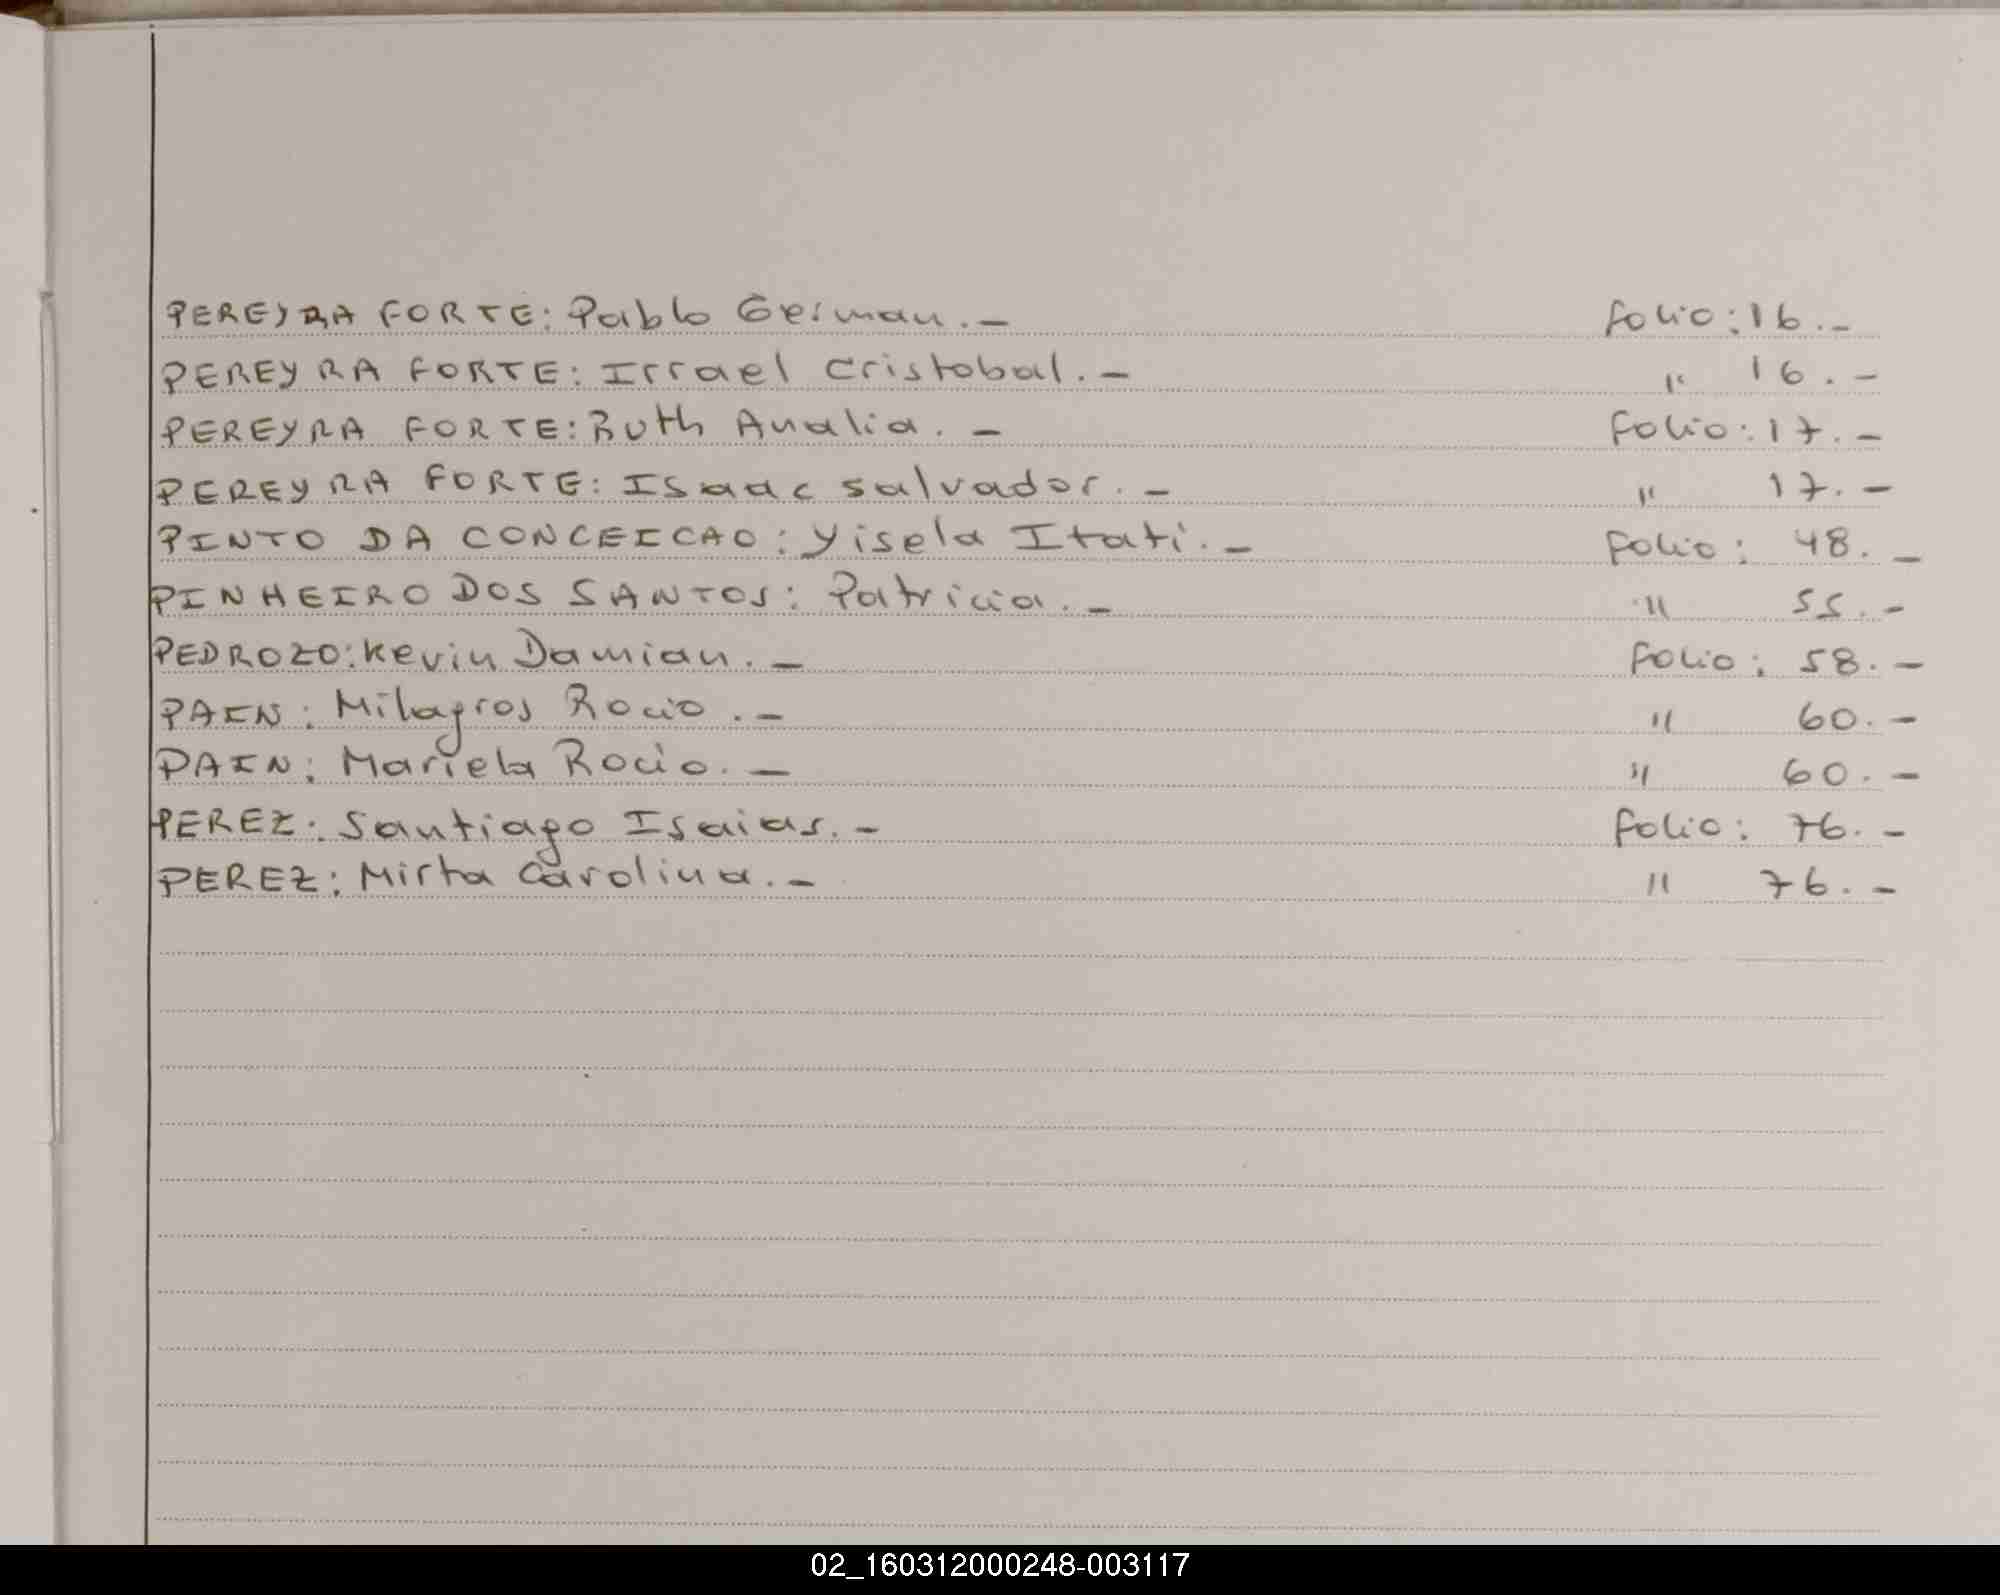 PEREYRA FORTE: Pablo German.- folio: 16.-
PEREYRA FORTE: Isrrael Cristobal.- " 16.-
PEREYRA FORTE: Ruth Analia.- folio: 17.-
PEREYRA FORTE: Isaac Salvador.- " 17.-
PINTO DA CONCEICAO: Yisela Itati.- folio: 48.-
PINHEIRO DOS SANTOS: Patricia.- " 55.-
PEDROZO: Kevin Damian.- folio: 58.-
PAIN: Milagros Rocio.- " 60.-
PAIN: Mariela Rocio.- " 60.-
PEREZ: Santiago Isaias.- folio: 76.-
PEREZ: Mirta Carolina.- " 76.-
02_160312000248-003117